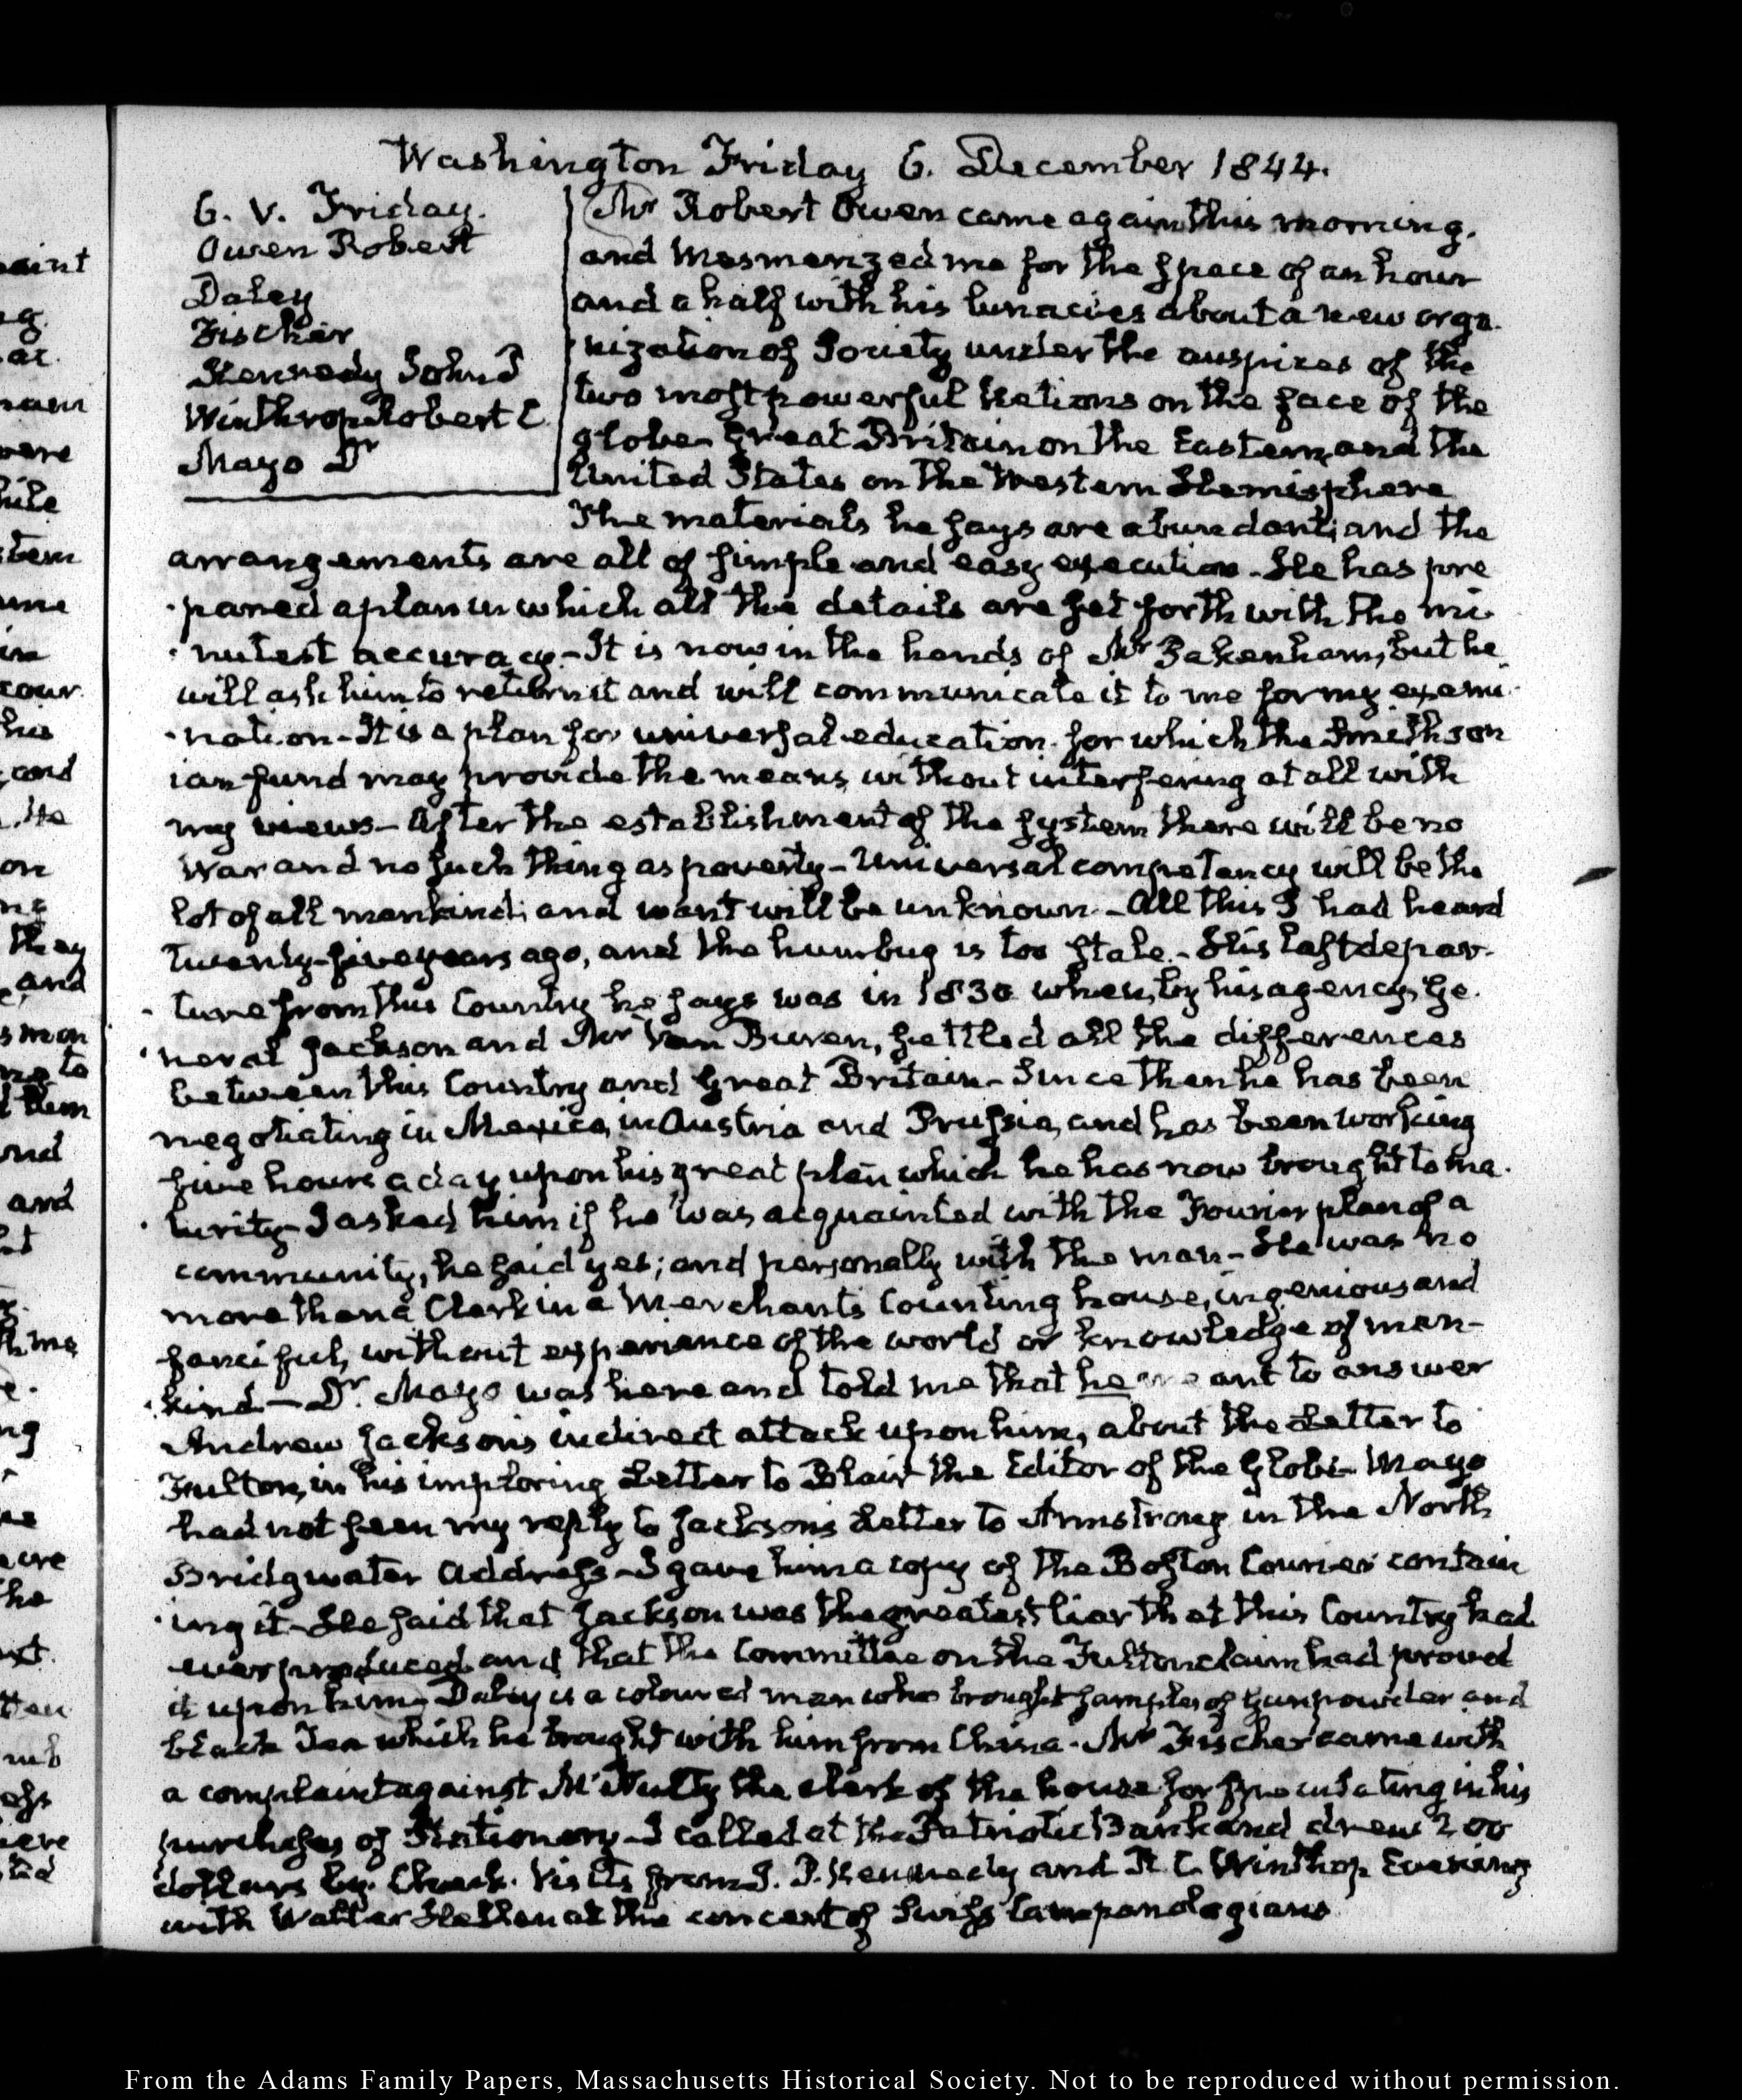 Washington Friday 6. December 1844.
6. V. Friday.
Owen Robert
Daley
Fischer
Kennedy John P
Winthrop Robert C
Mayo Dr
Mr Robert Owen came again this morning,
and Mesmerized me for the space of an hour
and a half with his lunacies about a new orga-
-nization of Society under the auspices of the
two most powerful Nations on the face of the
globe- Great Britain on the Eastern, and the
United States on the Western Hemisphere
The materials he says are abundant; and the
arrangements are all of simple and easy execution- He has pre
-pared a plan in which all the details are set forth with the mi-
-nutest accuracy- It is now in the hands of Mr Pakenham, but he
will ask him to return it and will communicate it to me for my exami-
-nation- It is a plan for universal education for which the Smithson
ian fund may provide the means, without interfering at all with
my views- After the establishment of the system there will be no
War and no such thing as poverty- Universal competency will be the
lot of all mankind; and want will be unknown- All this I had heard
twenty-five years ago, and the humbug is too stale- His last depar-
-ture from this Country he says was in 1830 when, by his agency, Ge-
-neral Jackson and Mr Van Buren, settled all the differences
between this Country and Great Britain- Since then he has been
negotiating in Mexico, in Austria and Prussia, and has been working
five hours a day upon his great plan which he has now brought to ma-
-turity- I asked him if he was acquainted with the Fourier plan of a
community, he said yes; and personally with the man- He was no
more than a Clerk in a Merchants Counting house, ingenious and
fanciful, without experience of the world or knowledge of man-
-kind- Dr. Mayo was here and told me that he meant to answer
Andrew Jackson's indirect attack upon him, about the Letter to
Fulton, in his imploring Letter to Blair the Editor of the Globe- Mayo
had not seen my reply to Jackson's Letter to Armstrong in the North
Bridgwater Address- I gave him a copy of the Boston Courier contain
-ing it- He said that Jackson was the greatest liar that this Country had
ever produced and that the Committee on the Fulton claim had proved
it upon him- Daley is a coloured man who brought samples of Gunpowder and
black Tea which he brought with him from China. Mr Fischer came with
a complaint against McNulty the clerk of the house for speculating in his
purchases of Stationery- I called at the Patriotic Bank and drew 200
dollars by Check. Visits from J. P. Kennedy and R. C. Winthrop Evening
with Walter Hellen at the concert of Swiss Campanologians
aint
g
at.
nam
were
hile
tem
ume
in
cour
his
and
He
on
they
and
man
to
them
and
and
me
ng
were
he
xt.
ere
ted
From the Adams Family Papers, Massachusetts Historical Society. Not to be reproduced without permission.